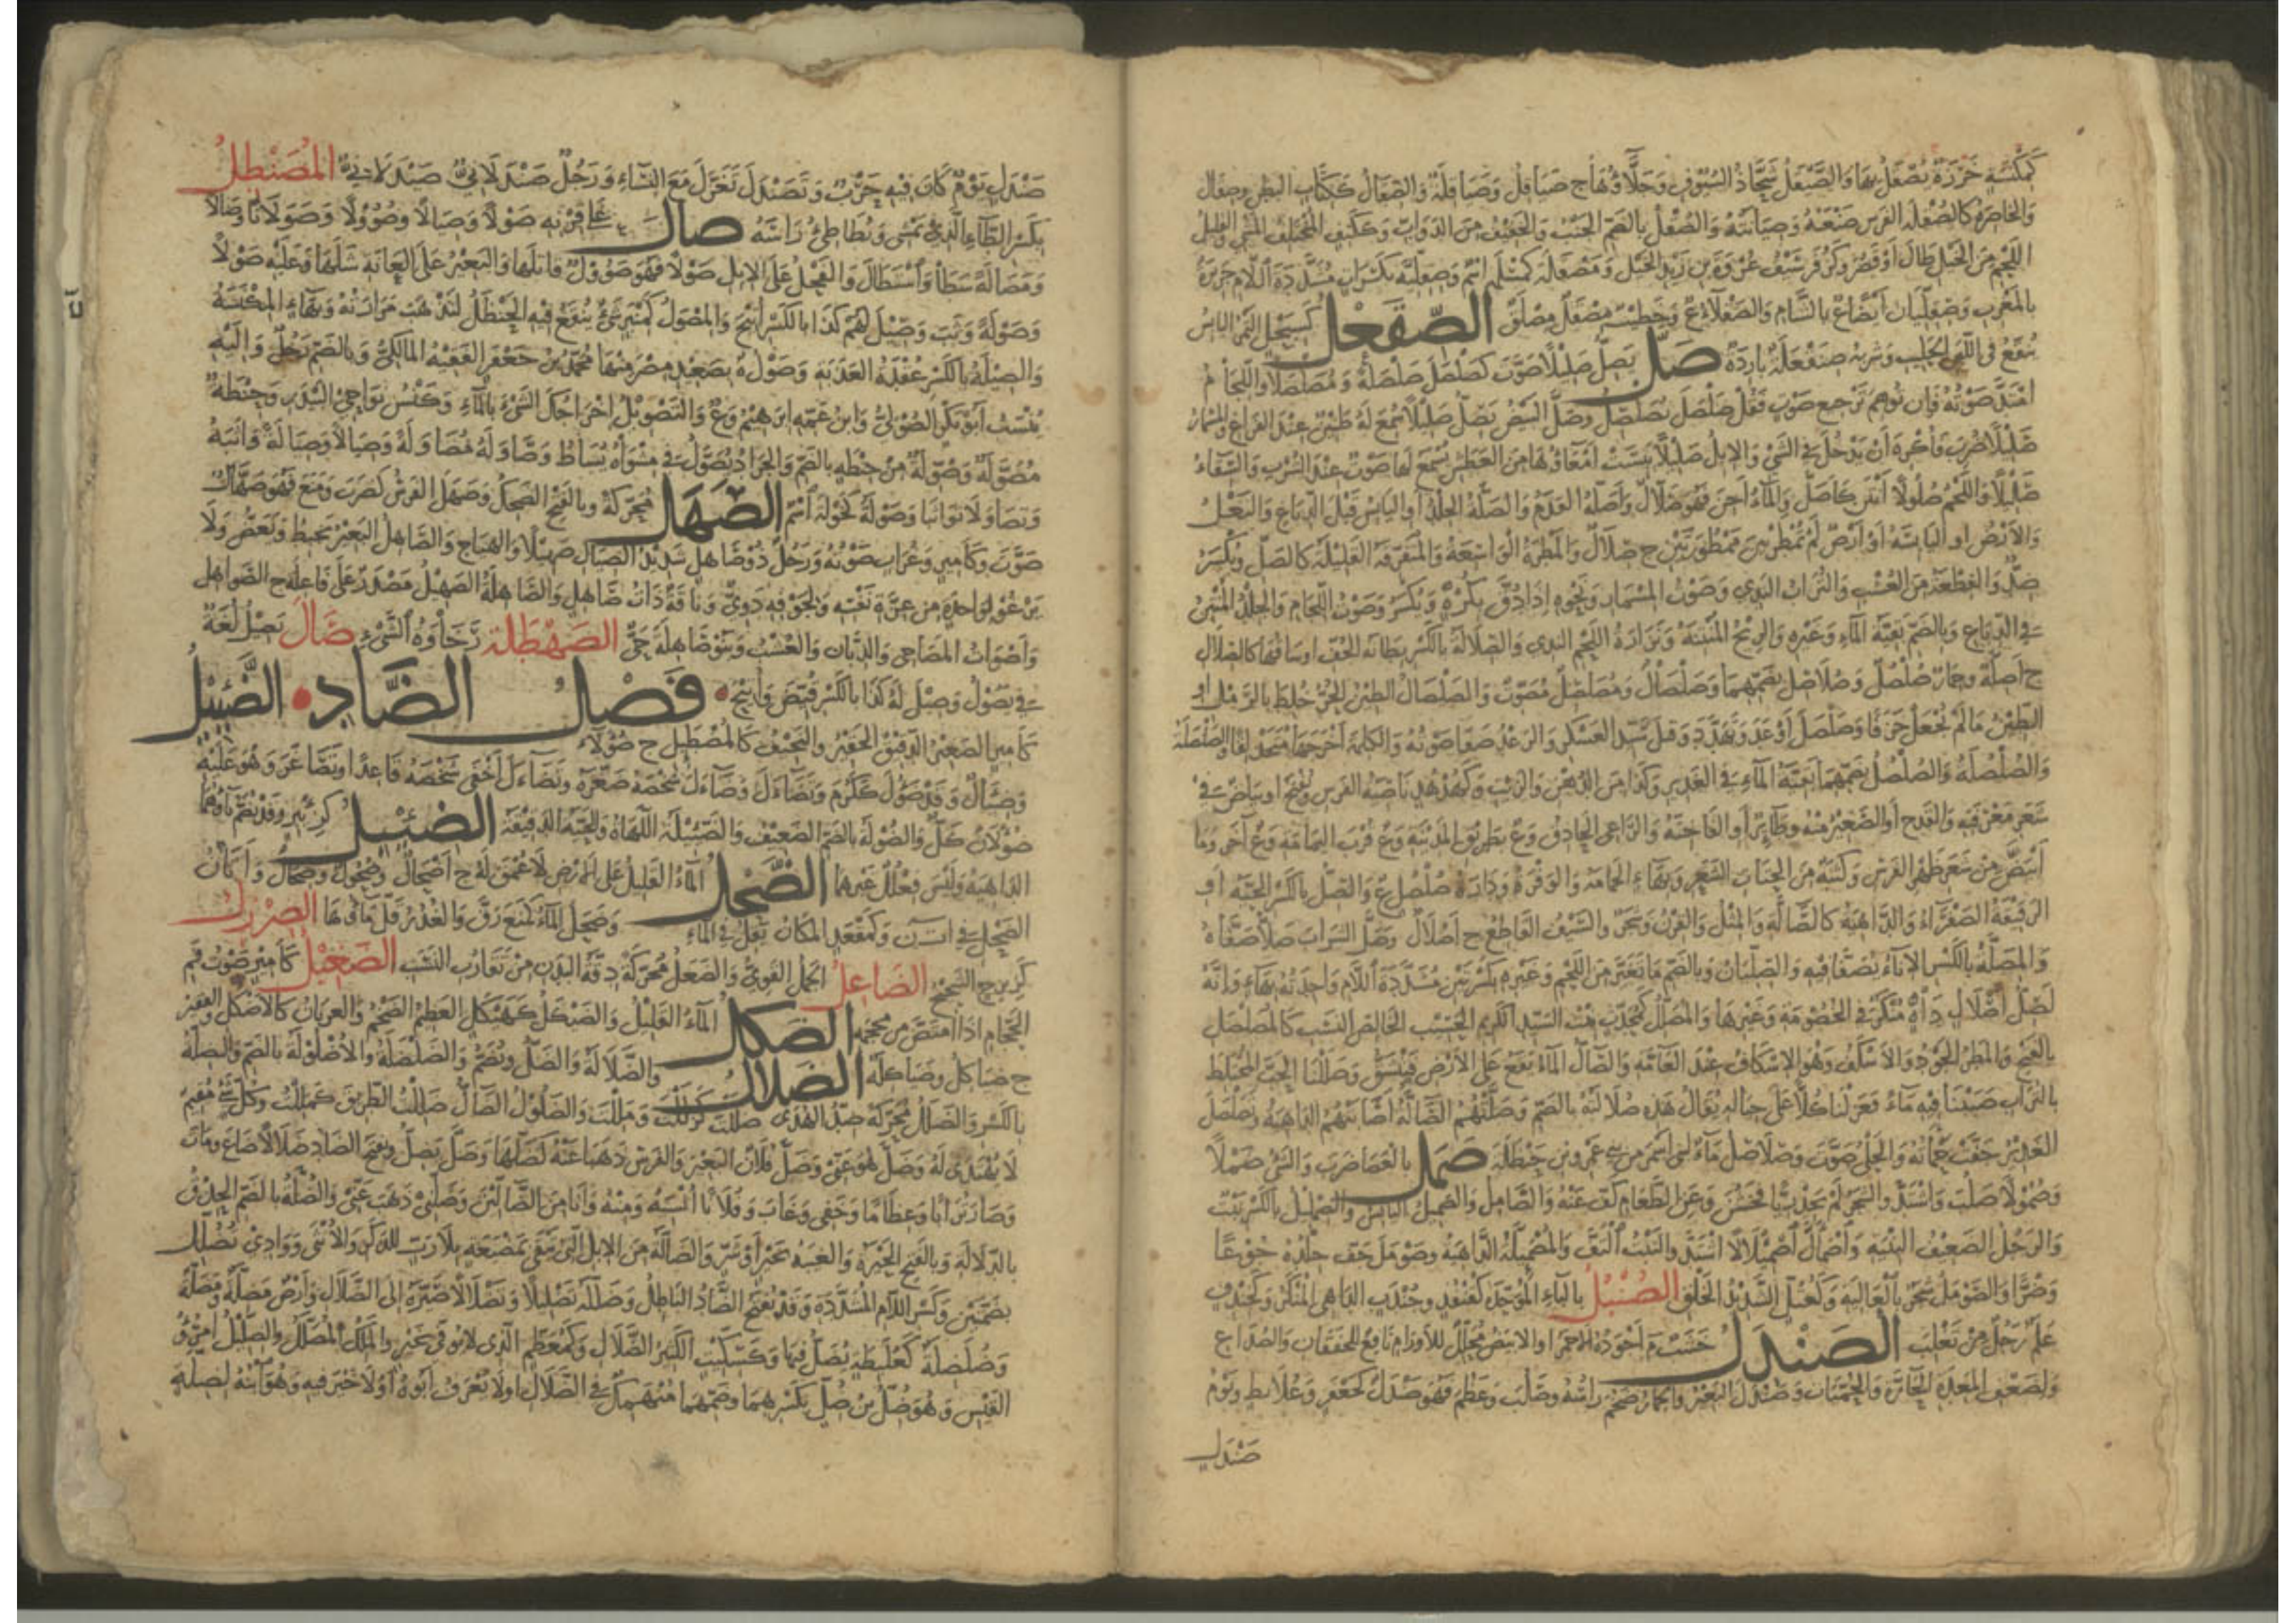 كمكنسة خرزة يصقل بها والصيقل شحاذ السيوف وجلاؤها ج صياقل وصياقلة والصقال ككتاب البطن وصقال
والخاصرة كالصقلة الفرس صنعته وصيانته والصقل بالضم الجنب والخفيف من الدواب وككتف المختلف المشي والقليل
اللحم من الخيل طال أو قصر وكزفر سيف عروة بن زيد الخيل ومصقلة كمسلمة اسم وصقلية بكسرات مشددة اللام جزيرة
بالمغرب وصقليان أيضا ع بالشام والصقلاء ع وخطيب مصقل مصلق الصقعل كسبحل التمر اليابس
ينقع في اللبن الحليب وشربة صنقعلة باردة صل يصل صليلا صوت كصلصل صلصلة ومصلصلا واللجام
امتد صوته فإن توهم ترجيع صوت فقل صلصل يصلصل وصل البيض يصل صليلا سمع له طنين عند القراع والمسمار
صليلا ضرب فأكره أن يدخل في الشيء والإبل صليلا يبست أمعاؤها من العطش يسمع لها صوت عند الشرب والسقاء
صليلا واللحم صلولا أنتن كأصل والماء أجن فهو صلال وأصله القدم والصلة الجلد أو اليابس قبل الدباغ والنعل
والأرض أو اليابسة أو أرض لم تمطر بين ممطورتين ج صلال والمطرة الواسعة والمتفرقة القليلة كالصل ويكسر
ضد والقطعة من العشب والتراب الندي وصوت المسمار ونحوه إذا دق بكره ويكسر وصوت اللجام والجلد المنتن
في الدباغ وبالضم بقية الماء وغيره والريح المنتنة وترارة اللحم الندي والصلالة بالكسر بطانة الخف أو ساقها كالصلال
ج أصلة وحمار صلصل وصلاصل بضمهما وصلصال ومصلصل مصوت والصلصال الطين الحر خلط بالرمل أو
الطين ما لم يجعل خزفا وصلصل أوعد وتهدد وقتل سيد العسكر والرعد صفا صوته والكلمة أخرجها متحذلقا والصلصلة
والصلصلة والصلصل بضمهما بقية الماء في الغدير وكذا من الدهن والزيت وكهدهد ناصية الفرس ويفتح أو بياض في
شعر معرفته والقدح أو الصغير منه وطائر أو الفاختة والراعي الحاذق وع بطريق المدينة وع قرب اليمامة وع آخر وما
ابيض من شعر ظهر الفرس ولبته من انحتات الشعر وبهاء الحمامة والوفرة ودارة صلصل ع والصل بالكسر الحية أو
الدقيقة الصفراء والداهية كالصالة والمثل والقرن وشجر والسيف القاطع ج أصلال وصل الشراب صلا صفاه
والمصلة بالكسر الإناء يصفى فيه والصليان وبالضم ما تغير من اللحم وغيره بكسرتين مشددة اللام واحدته بهاء وإنه
لصل أصلال داه منكر في الخصومة وغيرها والمصلل كمحدث السيد الكريم الحسيب الخالص النسب كالمصلصل
بالفتح والمطر الجود والأسكف وهو الإسكاف عند العامة والصال الماء يقع على الأرض فتنشق وصللنا الحب المختلط
بالتراب صببنا فيه ماء فعزلنا كلا على حياله يقال هذه صلالته بالضم وصلتهم الصالة أصابتهم الداهية وتصلصل
الغدير جفت حمأته والحلي صوت وصلاصل ماء لبني أسمر من بني عمرو بن حنظلة صمل بالعصا ضرب والشيء صملا
وصمولا صلب واشتد والشجر لم يجد ريا فخشن وعن الطعام كف عنه والصامل والصميل اليابس والصمليل بالكسر نبت
والرجل الضعيف البنية واصمأل اصمئلالا اشتد والنبت التف والمصمئلة الداهية وصومل جف جلده جوعا
وضرا والصومل شجر بالعالية وكعتل الشديد الخلق الصنبل بالباء الموحدة كقنفد وخندف الداهي المنكر وكخندف
علم رجل من تغلب الصندل خشب م أجوده الأحمر أو الأبيض محلل للأورام نافع للخفقان والصداع
ولضعف المعدة الحارة والحميات وصندل البعير والحمار ضخم رأسه وصلب وعظم فهو صندل كجعفر وعلابط ويوم
صندل
صندل يوم كان فيه حرب وتصندل تغزل مع النساء ورجل صندلاني صيدلاني المصنطل
بكسر الطاء الذي يمشي ويطأطئ رأسه صال على قرنه صولا وصيالا وصؤولا وصولانا وصالا
ومصالة سطا واستطال والفحل على الإبل صولا فهو صؤول قاتلها والبعير على العانة شلها وعليه صولا
وصولة وثب وصيل لهم كذا بالكسر أتيح والمصول كمنبر شيء ينقع فيه الحنظل لتذهب مرارته وبهاء المكنسة
والصيلة بالكسر عقدة العذبة وصول ة بصعيد مصر منها محمد بن جعفر الفقيه المالكي وبالضم رجل وإليه
ينسب أبو بكر الصولي وابن عمه إبراهيم وع والتصويل إخراجك الشيء بالماء وكنس نواحي البيدر وحنطة
مصولة وصولة من حنطة بالضم والجراد يصول في مشواه يساط وصاوله مصاولة وصيالا وصيالة واثبه
وتصاولا تواثبا وصولة كخولة اسم الصهل محركة وبالفتح الصحل وصهل الفرس كضرب ومنع فهو صهال
صوت وكأمير وغراب صوته ورجل ذو صاهل شديد الصيال صهيلا والهياج والصاهل البعير يخبط ويعض ولا
يرغو لواحدة من عزة نفسه ولجوفه دوي وناقة ذات صاهل والصاهلة الصهيل مصدر على فاعلة ج الصواهل
وأصوات المساحي والذبان والعشب وبنو صاهلة حي الصهطلة رخاوة الشيء صال يصيل لغة
في يصول وصيل له كذا بالكسر قيض وأتيح فصل الضاد الضئيل
كأمير الصغير الدقيق الحقير والنحيف كالمضطئل ج ضؤلاء
وضئال وقد ضؤل ككرم وتضاءل وضاءل شخصه صغره وتضاءل أخفى شخصه قاعدا وتصاغر وهو عليه
ضؤلان كل والضؤلة بالضم الضعيف والضئيلة اللهاة والحية الدقيقة الضئبل كزئبر وقد تضم باؤهما
الداهية وليس فعلل غيرهما الضحل الماء القليل على الأرض لا عمق له ج أضحال وضحول وضحال وأتان
الضحل في أت ن وكمقعد المكان يقل فيه الماء وضحل الماء كمنع رق والغدر قل ماؤها الضرزل
كزبرج الشحيح الضاعل الجمل القوي والضعل محركة دقة البدن من تقارب النسب الضغيل كأمير صوت فم
الحجام إذا امتص من محجمه الضكل الماء القليل والضيكل كهيكل العظيم الضخم والعريان كالأضكل والفقير
ج ضياكل وضياكلة الضلال والضلالة والضل ويضم والضلضلة والأضلولة بالضم والضلة
بالكسر والضلل محركة ضد الهدى ضللت كزللت ومللت والضلول الضال ضللت الطريق كمللت وكل شيء مقيم
لا يهتدى له وضل هو عني وضل فلان البعير والفرس ذهبا عنه كأضلها وضل يضل وتفتح الضاد ضلالا ضاع ومات
وصار ترابا وعظاما وخفي وغاب وفلانا أنسيه ومنه وأنا من الضالين وضلني ذهب عني والضلة بالضم الحذق
بالدلالة وبالفتح الحيرة والغيبة بخير أو شر والضالة من الإبل التي تبقى بمضيعة بلا رب للذكر والأنثى ووادي تضلل
بضمتين وكسر اللام المشددة وقد تفتح الضاد الباطل وضلله تضليلا وتضلالا صيره إلى الضلال وأرض مضلة ومضلة
وضلضلة كعلبطة يضل فيها وكسكيت الكثير الضلال وكمعظم الذي لا يوفق بخير والملك المضلل والضليل امرؤ
القيس وهو ضل بن ضل بكسرهما وضمهما منهمك في الضلال أو لا يعرف أبوه أو لا خير فيه وهو ابنه لضلة